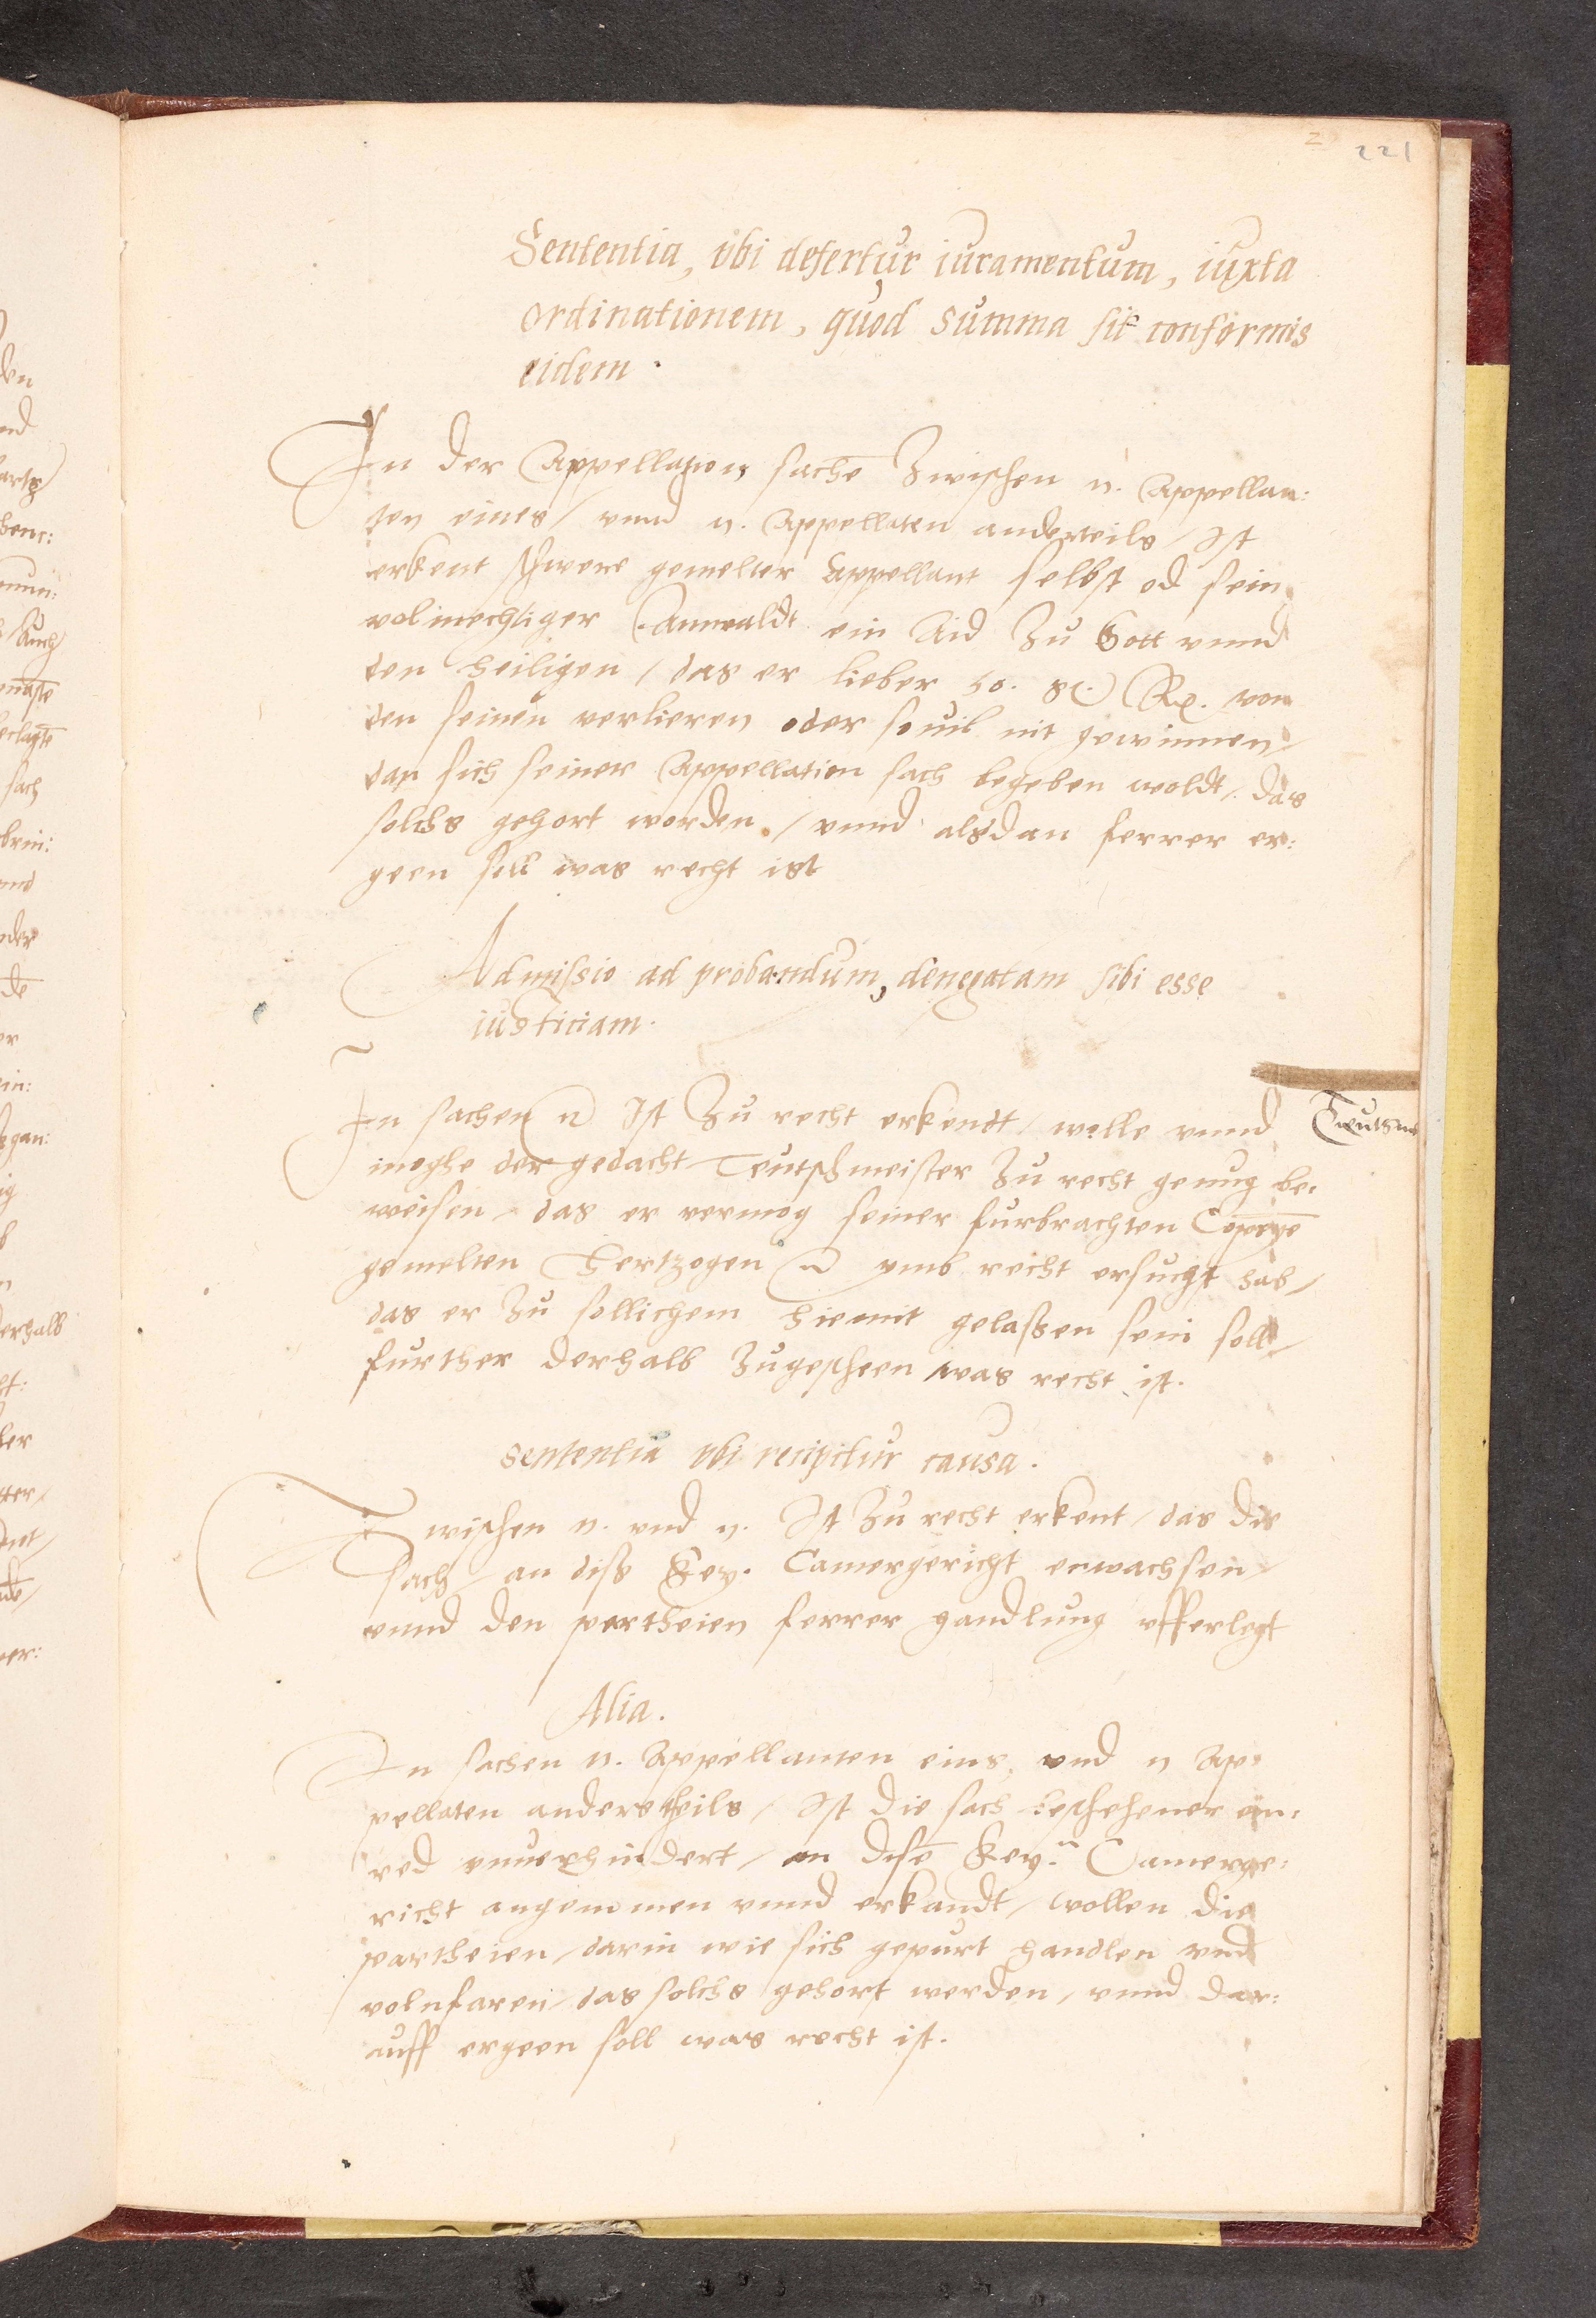 2 221
Sententia, vbi defertur iuramentum, iuxta
ordinationem, quod summa sit conformis
eidem.
In der Appellation sache zwischen n. Appellan:
ten eines / vnnd n. Appellaten anderteils / Ist
erkent schwere gemelter Appellant selbst od sein
volmechtiger Anwaldt ein Aid zu Gott vnnd
den heiligen / das er lieber 50. von
den seinen verlieren oder souil nit gewinnen /
dan sich seiner Appellation sach begeben woldt / das
solchs gehort worden / vnnd alsdan ferrer er:
geen soll was recht ist
Admissio ad probandum, denegatam sibi esse
iusticiam.
In sachen n Ist zu recht erkendt / wolle vnnd
moghe der gedacht Teutschmeister zu recht genug be:
weisen / das er vermog seiner furbrachten Copeye
gemelten Hertzogen n vmb recht ersucht hab /
das er zu sollichem hiemit gelassen sein soll /
further derhalb zugescheen was recht ist.
Teutsm
Sententia vbi recipitur causa.
Zwischen n. vnd n. Ist zu recht erkent / das die
sach / an diss Key. Camergericht erwachsen /
vnnd den partheien ferrer handlung vfferlegt
Alia.
In sachen n. Appellanten eins, vnd n Ap:
pellaten anderstheils / Ist die sach beschehener ein:
red vnuerhindert / an dise Key. Camerge:
richt angenommen vnnd erkandt / wollen die
partheien / darin wie sich gepurt handlen vnd
volnfaren / das solchs gehort werden / vnnd dar:
auff ergeen soll was recht ist.